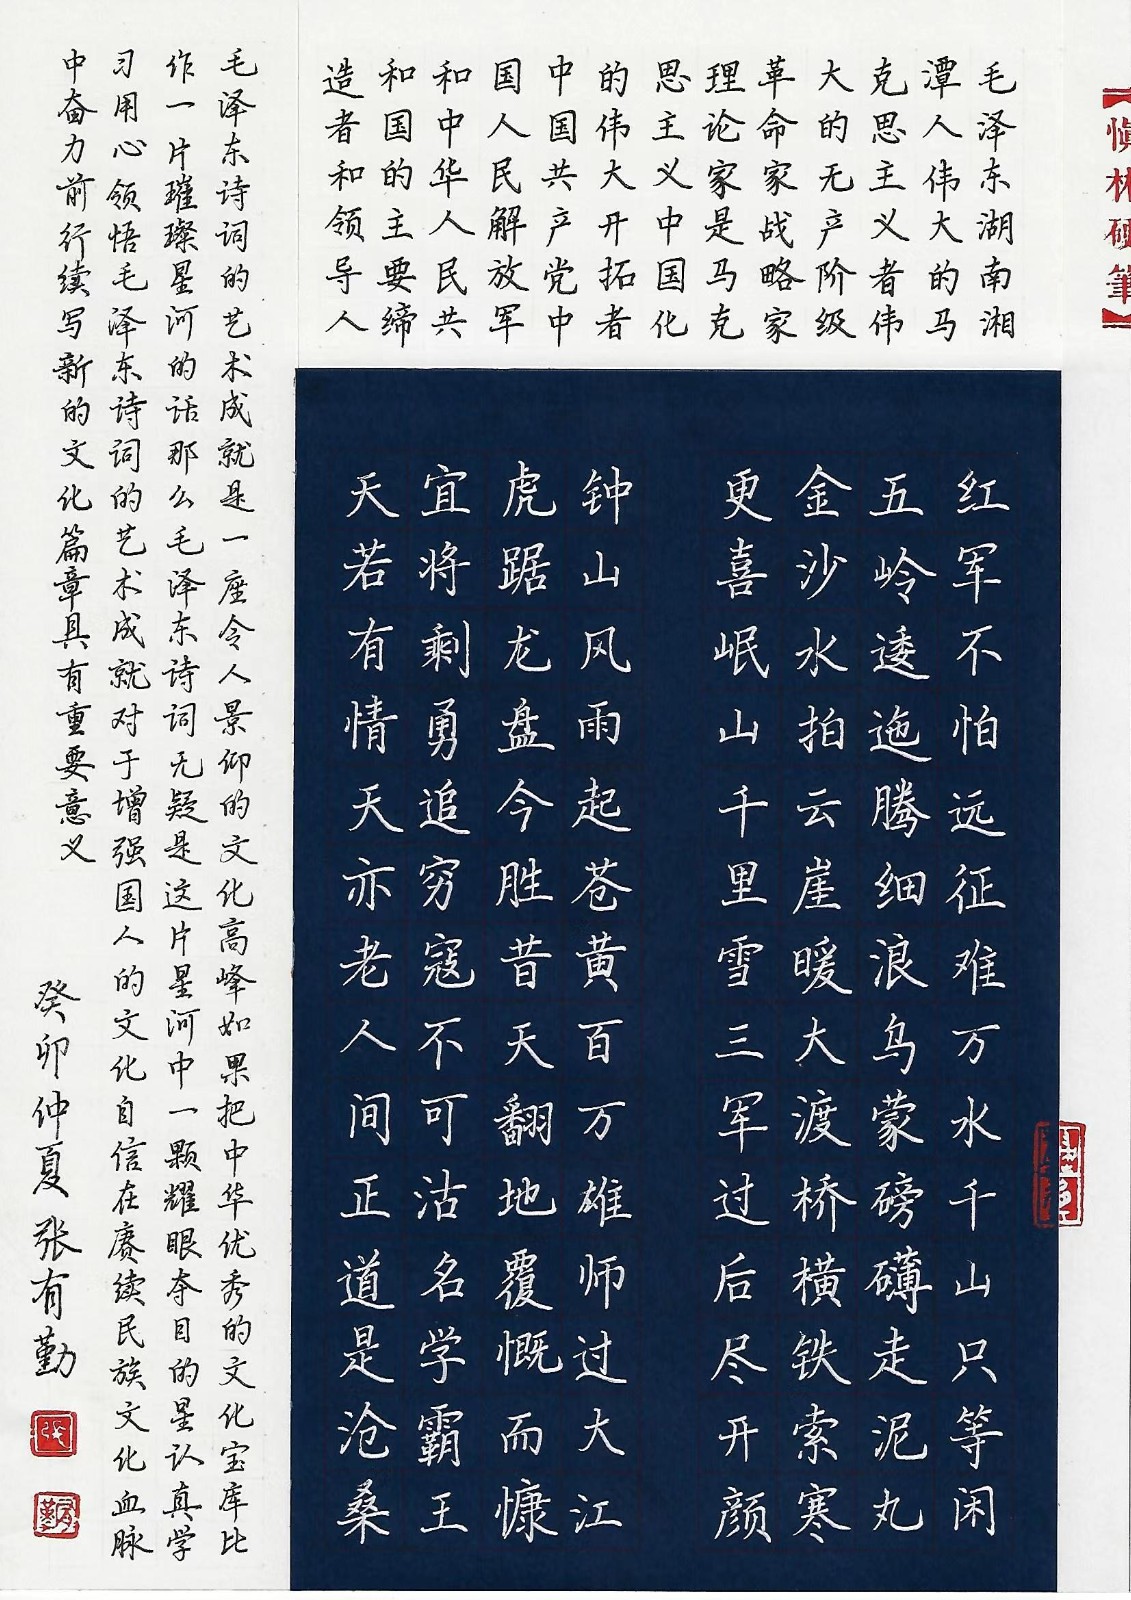 【慎林硬筆】
毛泽东湖南湘
潭人伟大的马
克思主义者伟
大的无产阶级
革命家战略家
理论家是马克
思主义中国化
的伟大开拓者
中国共产党中
国人民解放军
和中华人民共
和国的主要缔
造者和领导人
红军不怕远征难万水千山只等闲
五岭逶迤腾细浪乌蒙磅礴走泥丸
金沙水拍云崖暖大渡桥横铁索寒
更喜岷山千里雪三军过后尽开颜
钟山风雨起苍黄百万雄师过大江
虎踞龙盘今胜昔天翻地覆慨而慷
宜将剩勇追穷寇不可沽名学霸王
天若有情天亦老人间正道是沧桑
毛泽东诗词的艺术成就是一座令人景仰的文化高峰如果把中华优秀的文化宝库比
作一片璀璨星河的话那么毛泽东诗词无疑是这片星河中一颗耀眼夺目的星认真学
习用心领悟毛泽东诗词的艺术成就对于增强国人的文化自信在赓续民族文化血脉
中奋力前行续写新的文化篇章具有重要意义
癸卯仲夏张有勤